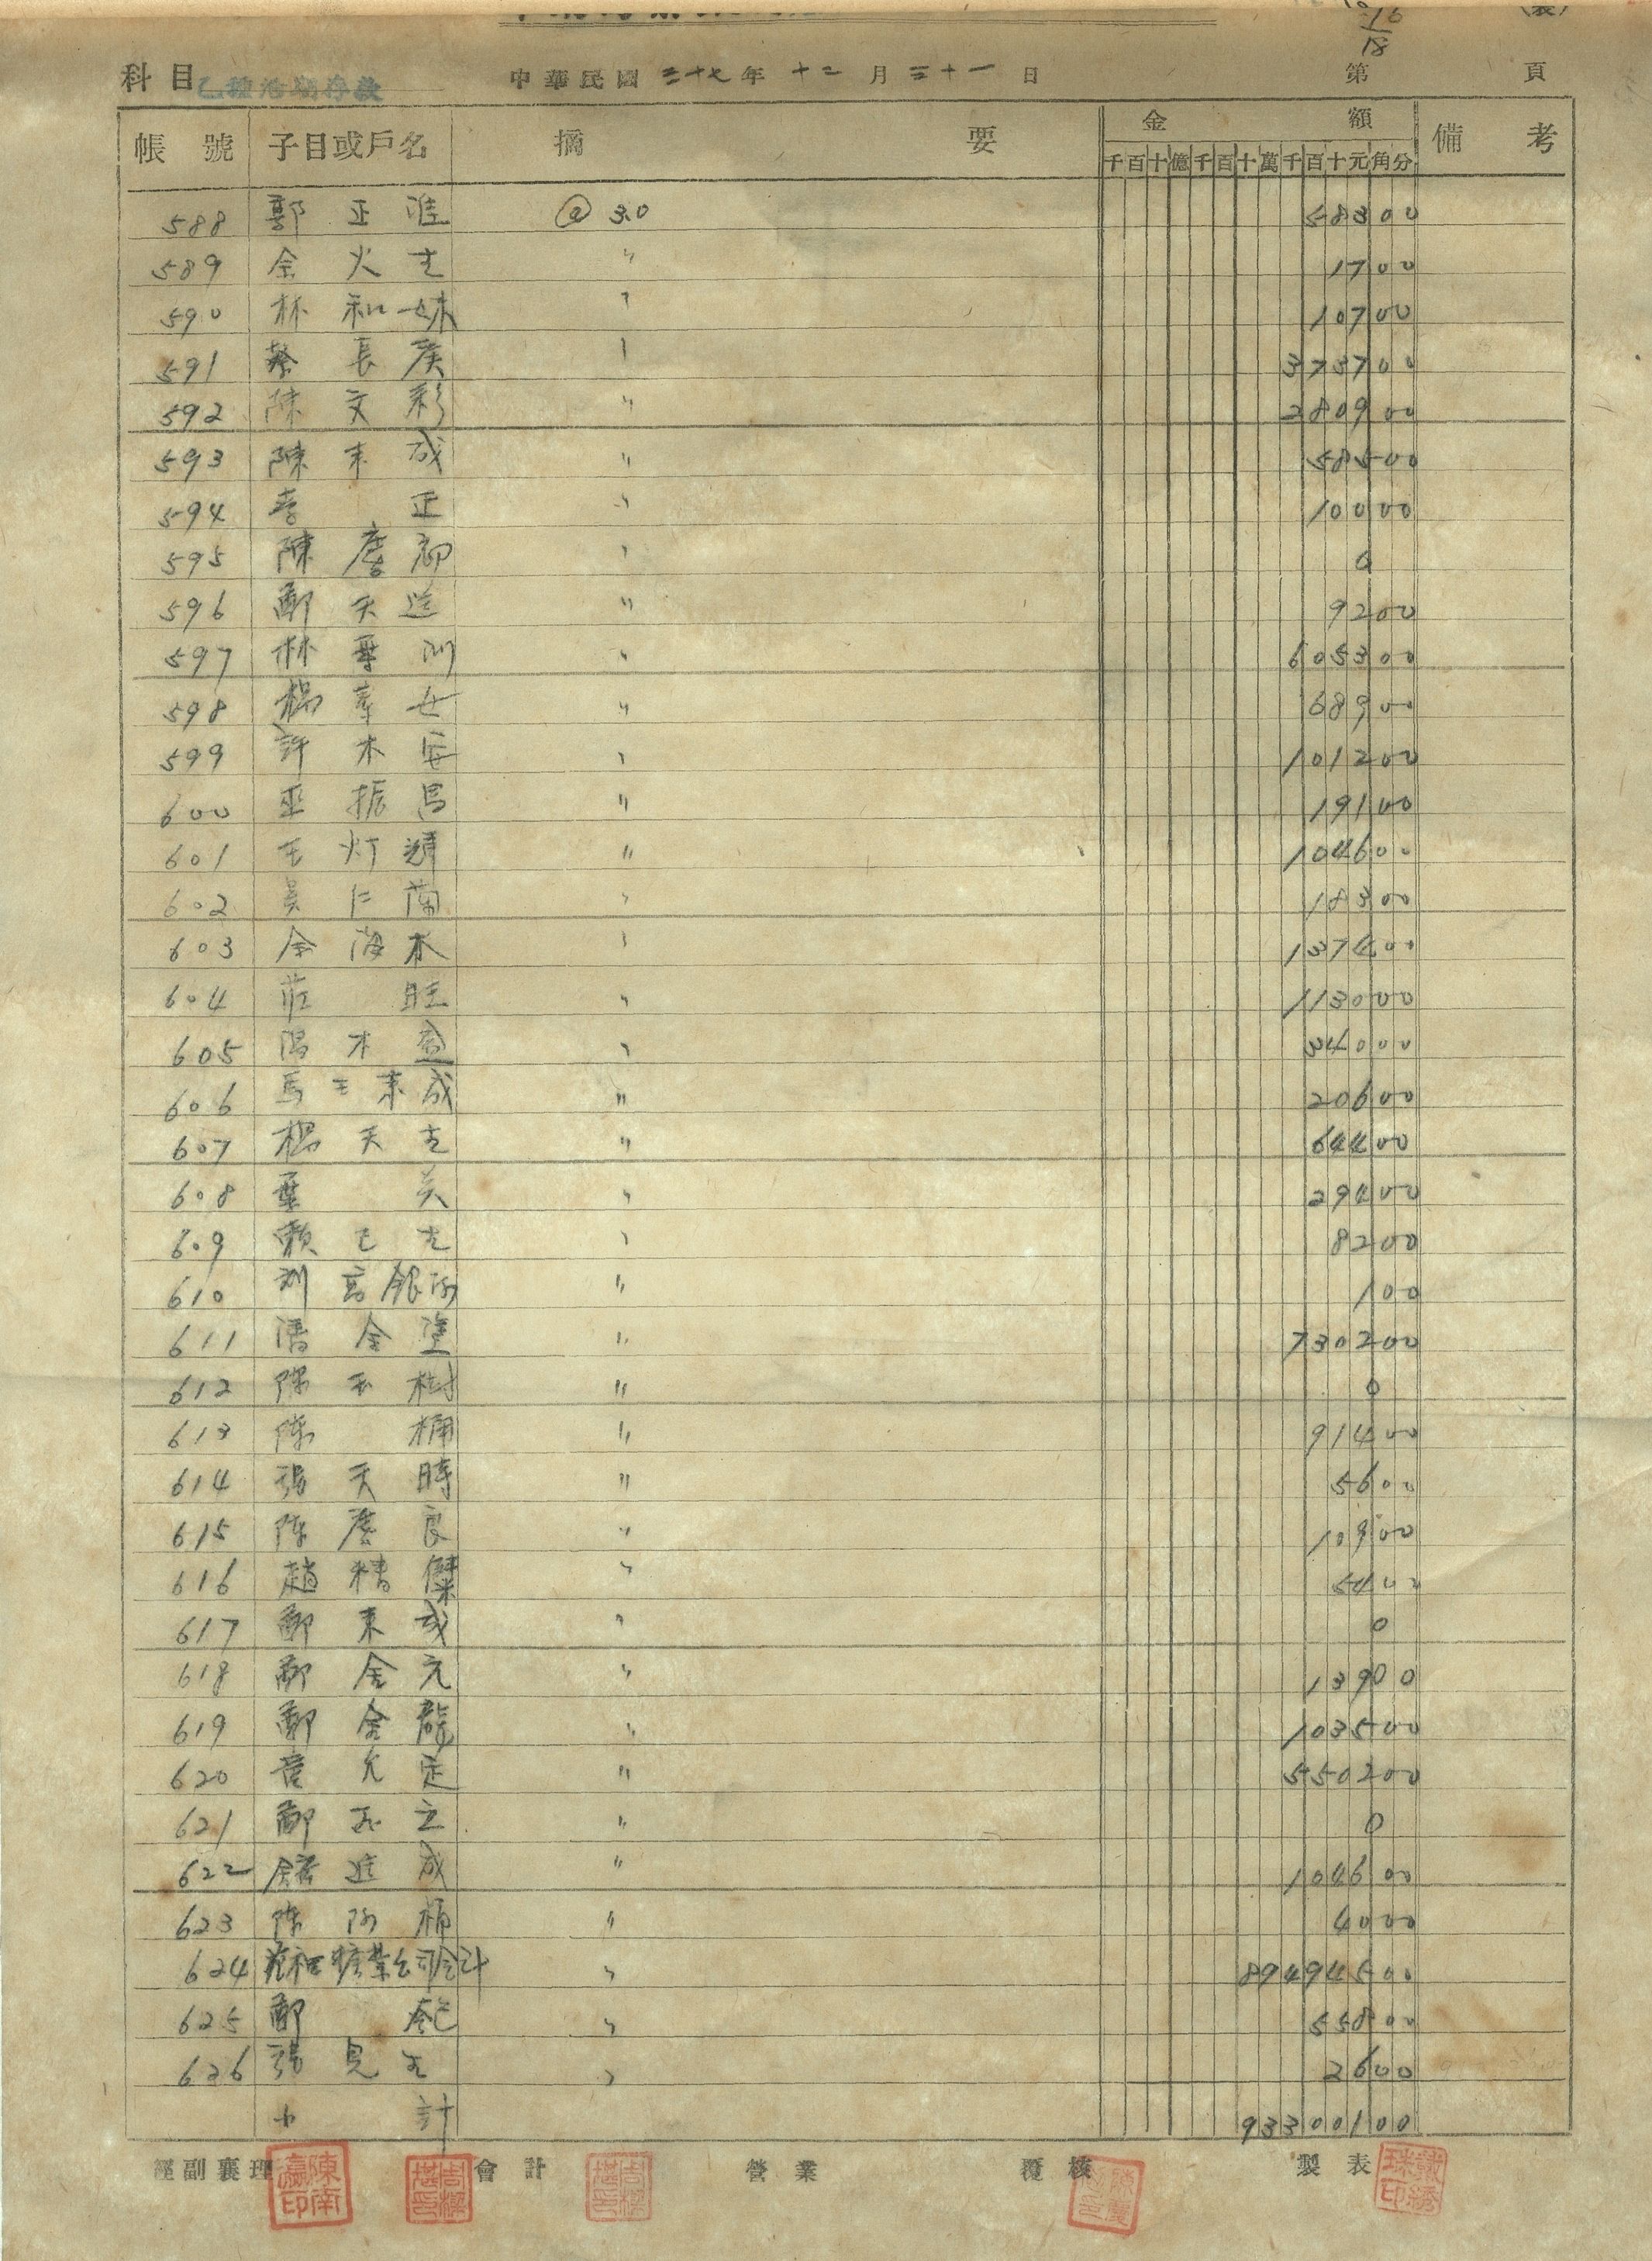 16
18
科目 乙種活期存款 中華民國 三十七 年 十二 月 三十一 日 第 頁
帳號 子目或戶名 摘要 金額 備考
千百十億千百十萬千百十元角分
588 郭正淮 @ 3.0 58300
589 余火生 〃 1700
590 林和妹 〃 10700
591 蔡長庚 〃 373700
592 陳文彩 〃 280900
593 陳来成 〃 58500
594 李正 〃 10000
595 陳慶 〃 0
596 鄭天送 〃 9200
597 林 〃 605300
598 楊 女 〃 68900
599 許木 〃 101200
600 巫振昌 〃 19100
601 王灯輝 〃 104600
602 吳仁蘭 〃 18300
603 余海木 〃 137400
604 莊旺 〃 113000
605 木 〃 34000
606 馬王来成 〃 20600
607 楊天生 〃 64400
608 葉 〃 29400
609 賴 生 〃 8200
610 劉 銀 〃 100
611 潘金塗 〃 730200
612 陳玉樹 〃 0
613 陳桶 〃 91400
614 張天時 〃 5600
615 陳慶良 〃 10900
616 趙精傑 〃 5400
617 鄭来成 〃 0
618 鄭金元 〃 13900
619 鄭金龍 〃 103500
620 允定 〃 550200
621 鄭 立 〃 0
622 進成 〃 104600
623 陳阿桶 〃 4000
624 和 業公司 〃 89494500
625 鄭 〃 55800
626 張見生 〃 2600
小計 93300100
經副襄理 陳南瀛印 會計 營業 覆核 製表